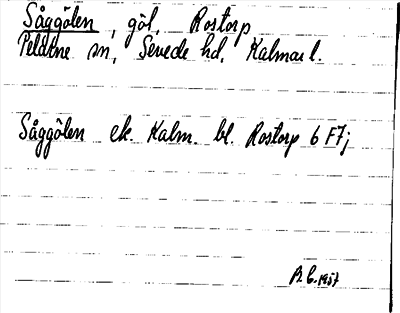 Såggölen, göl, Rostorp
Pelarne sn, Sevede hd, Kalmar l.
Såggölen ek. Kalm. bl. Rostorp 6 F7;
1957